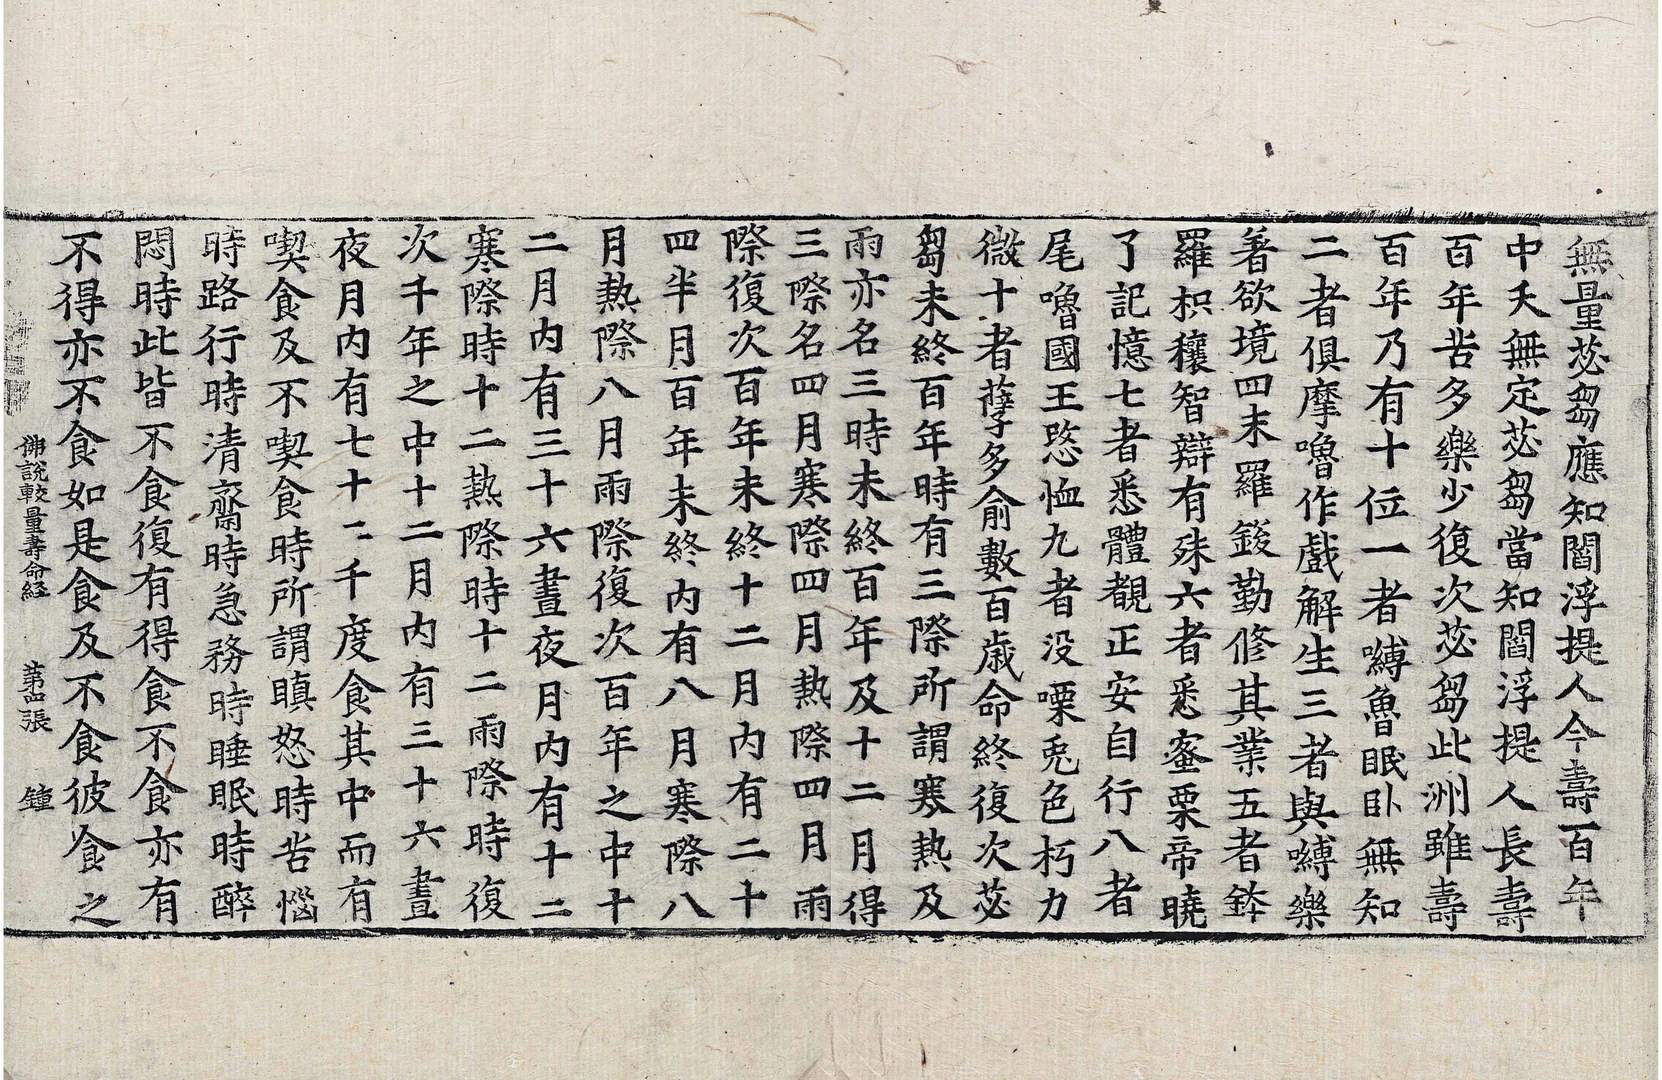 無量苾芻應知閻浮提人今壽百年
中夭無定苾芻當知閻浮提人長壽
百年苦多樂少復次苾芻此洲雖壽
百年乃有十位一者嚩魯眠卧無知
二者俱摩嚕作戲解生三者與嚩樂
著欲境四末羅籛勤修其業五者鉢
羅枳穰智辯有殊六者悉蜜栗帝曉
了記憶七者悉體覩正安自行八者
尾嚕國王愍恤九者没㗚兎色朽力
微十者孽多俞數百歲命終復次苾
芻未終百年時有三際所謂寒熱及
雨亦名三時未終百年及十二月得
三際名四月寒際四月熱際四月雨
際復次百年未終十二月內有二十
四半月百年未終內有八月寒際八
月熱際八月雨際復次百年之中十
二月內有三十六晝夜月內有十二
寒際時十二熱際時十二雨際時復
次千年之中十二月內有三十六晝
夜月內有七十二千度食其中而有
喫食及不喫食時所謂瞋怒時苦惱
時路行時清齋時急務時睡眠時醉
悶時此皆不食復有得食不食亦有
不得亦不食如是食及不食彼食之
佛說較量壽命経 第四張 鐘